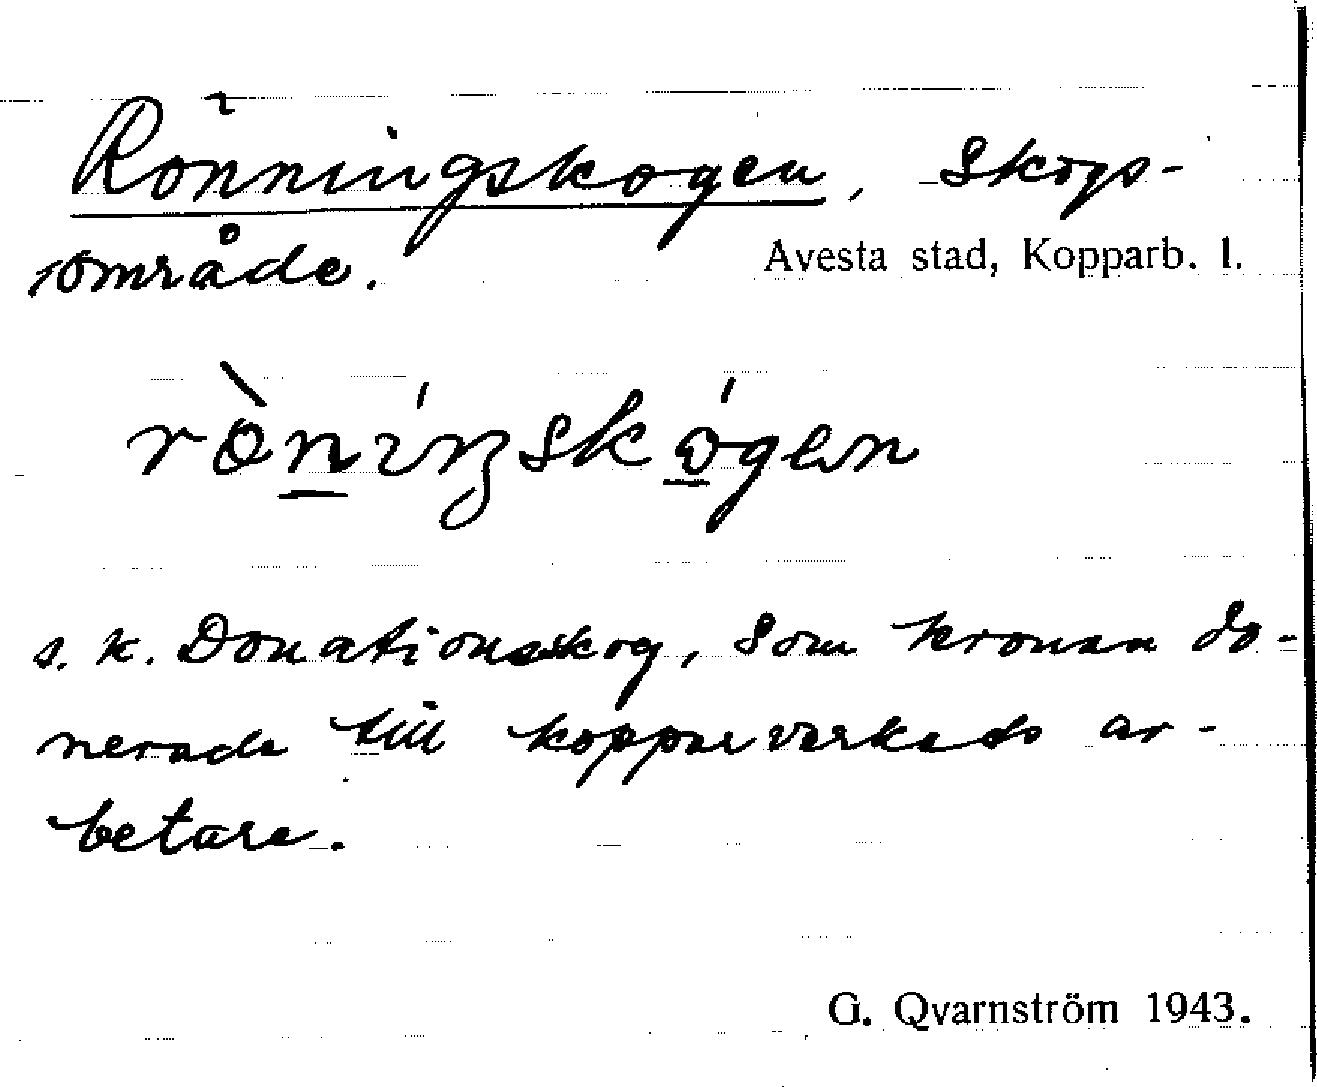 Rönningskogen, skogs-
område.
Avesta stad, Kopparb. l.
rö̀níŋskógen
s.k. Donationsskog, som kronan do-
nerade till kopparverkets ar-
betare.
G. Qvarnström 1943.